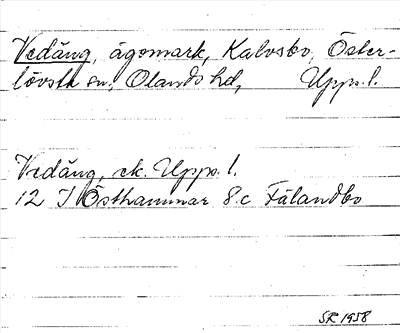 Vedäng, ägomark, Kalvsbo, Öster-
lövsta sn, Olands hd, Upps. l.
Vedäng, ek. Upps. l.
12 I Östhammar 8 c Fälandbo
SR 1958